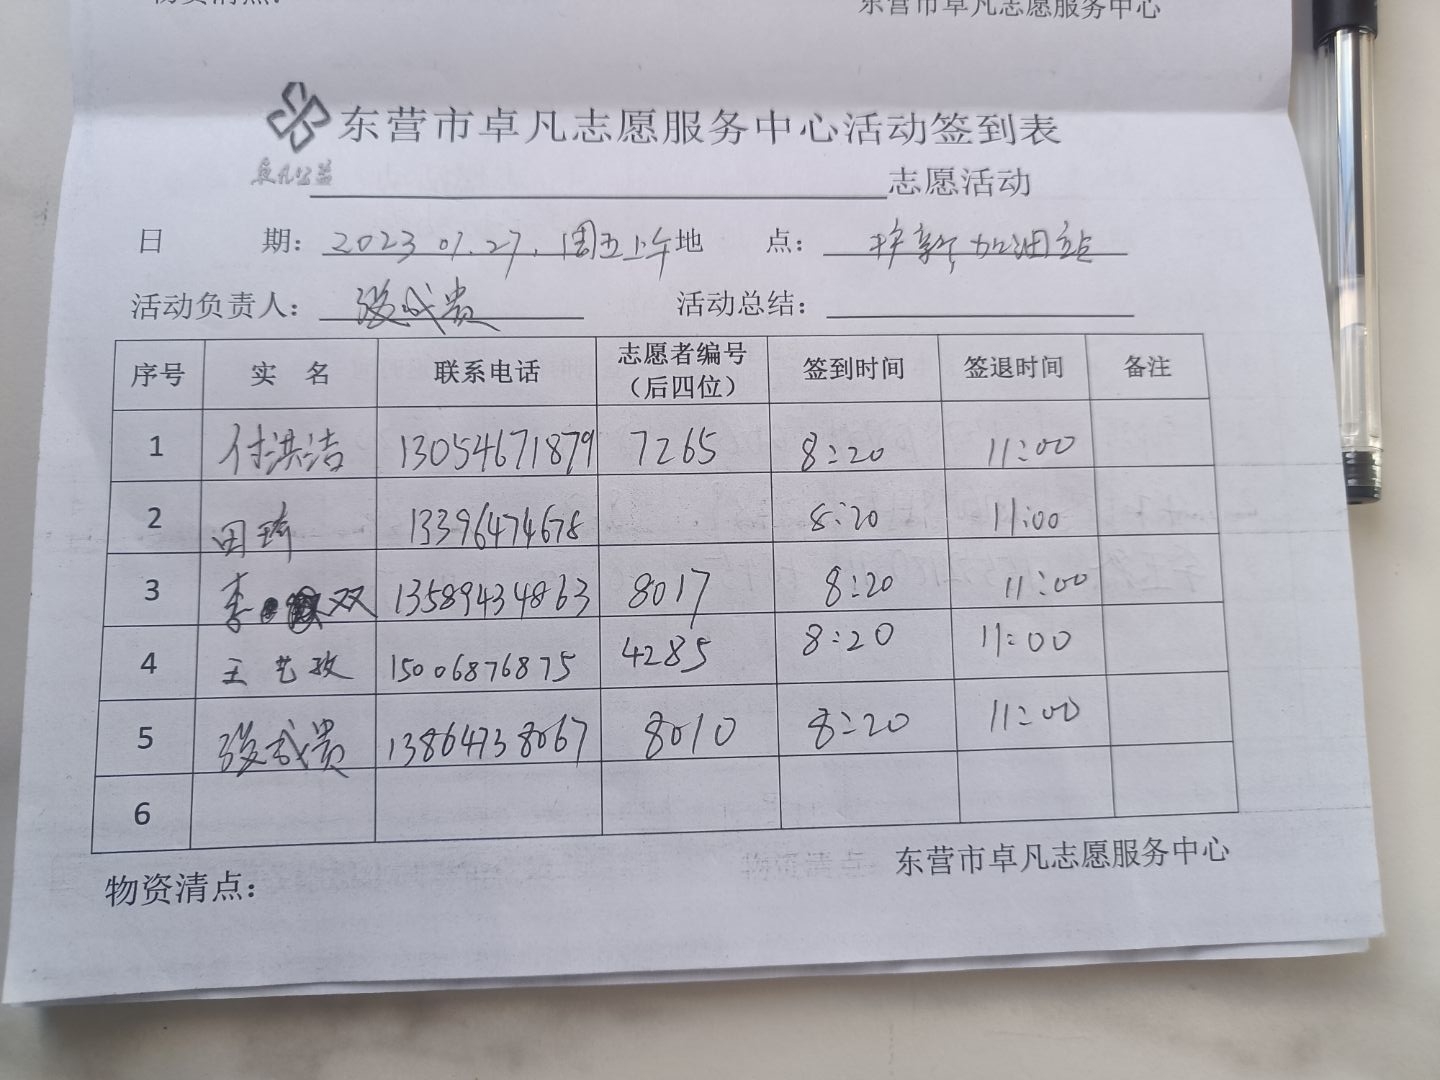 物资清点：
东营市卓凡志愿服务中心
东营市卓凡志愿服务中心活动签到表
卓凡公益
志愿活动
日 期：2023 01.27. 周五上午 地 点： 加油站
活动负责人： 成贵 活动总结：
序号 实 名 联系电话 志愿者编号（后四位） 签到时间 签退时间 备注
1 付洪洁 13054671879 7265 8:20 11:00
2 田琦 13396474678 8:20 11:00
3 李双 13589434863 8017 8:20 11:00
4 王艺孜 15006876875 4285 8:20 11:00
5 成贵 13864738067 8010 8:20 11:00
6
物资清点：
东营市卓凡志愿服务中心